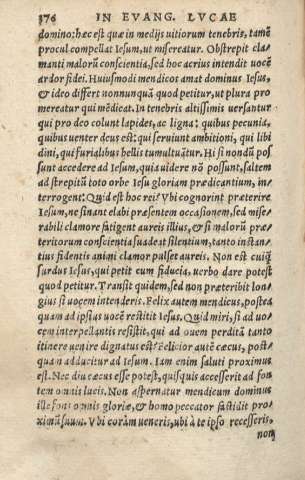 376 IN EVANG. LVCAE
domino: hæc est quæ in medijs uitiorum tenebris, tamẽ
procul compellat Iesum, ut misereatur. Obstrepit cla⸗
manti malorũ conscientia, sed hoc acrius intendit uocẽ
ardor fidei. Huiusmodi mendicos amat dominus Iesus,
& ideo differt nonnunquã quod petitur, ut plura pro
mereatur qui mẽdicat. In tenebris altissimis uersantur
qui pro deo colunt lapides, ac ligna: quibus pecunia,
quibus uenter deus est: qui seruiunt ambitioni, qui libi
dini, qui furialibus bellis tumultuãtur. Hi si nondũ pos
sunt accedere ad Iesum, quia uidere nõ possunt, saltem
ad strepitũ toto orbe Iesu gloriam prædicantium, in⸗
terrogent: Quid est hoc rei? Vbi cognorint præterire
Iesum, ne sinant elabi præsentem occasionem, sed mise⸗
rabili clamore fatigent aureis illius, & si malorũ præ⸗
teritorum conscientia suadeat silentium, tanto instan⸗
tius fidentis animi clamor pulset aureis. Non est cuiq̃
surdus Iesus, qui petit cum fiducia, uerbo dare potest
quod petitur. Transit quidem, sed non præteribit lon⸗
gius si uocem intenderis. Felix autem mendicus, postea
quam ad ipsius uocẽ restitit Iesus. Quid miri, si ad uo⸗
cem interpellantis resistit, qui ad ouem perditã tanto
itinere uenire dignatus est? Felicior autẽ cæcus, post⸗
quam adducitur ad Iesum. Iam enim saluti proximus
est. Nec diu cæcus esse potest, quisquis accesserit ad fon
tem omnis lucis. Non aspernatur mendicum dominus
ille fons omnis gloriæ, & homo peccator fastidit pro⸗
ximũ suum. Vbi corãm ueneris, ubi à te ipso recesseris,
non